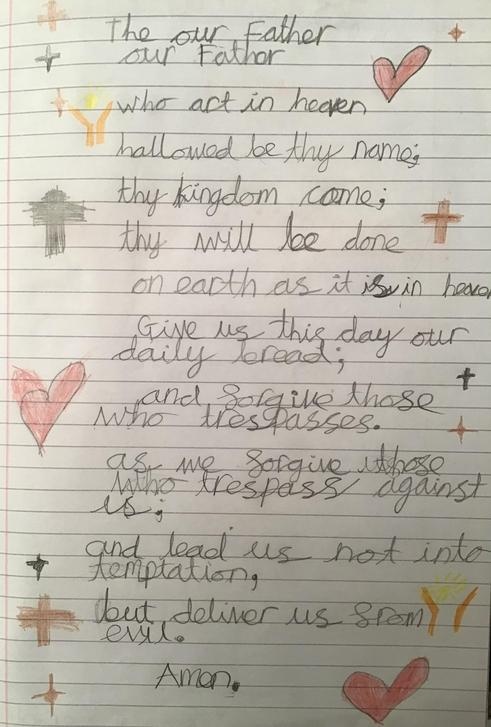 The our Father
our Father
who art in heaven
hallowed be thy name;
thy kingdom come;
thy will be done
on earth as it is in heaven
Give us this day our
daily bread;
and forgive those
who trespasses.
as we forgive those
who trespass against
us;
and lead us not into
temptation,
but deliver us from
evil.
Amen.